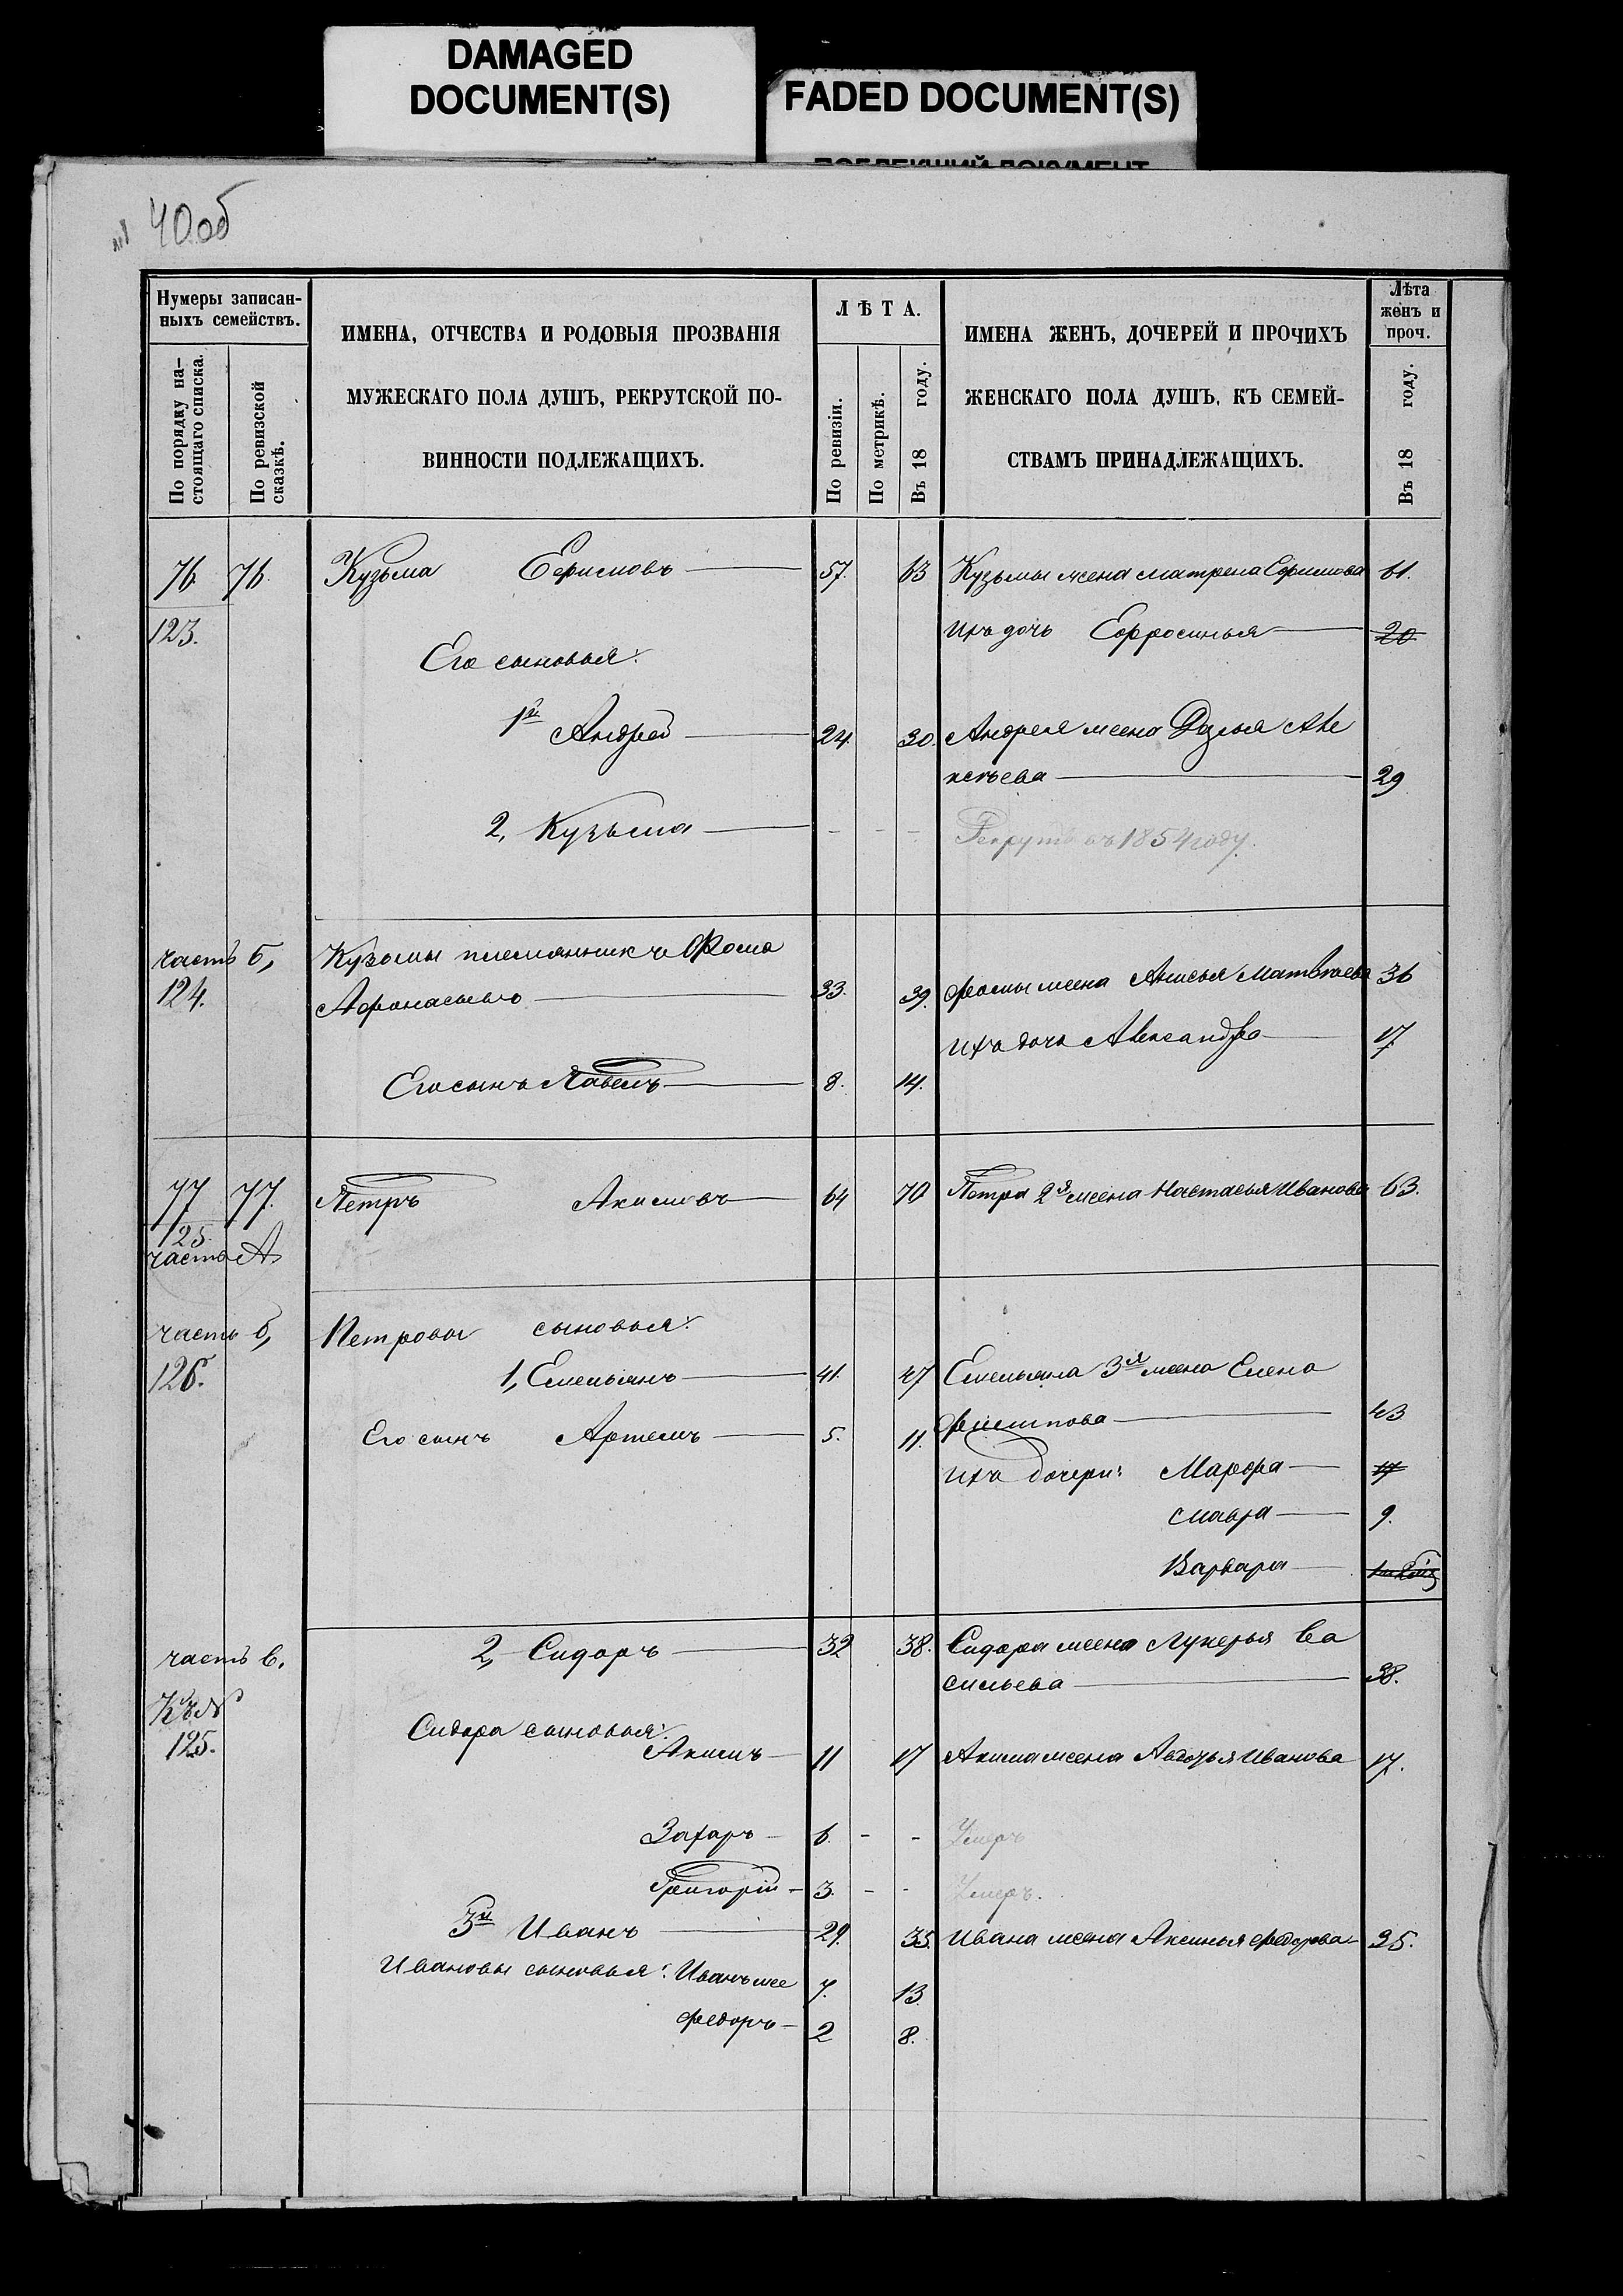 DAMAGED
DOCUMENT(S)
FADED DOCUMENT(S)
40об
Нумеры записан-
ныхъ семействъ.
По порядку на-
стоящаго списка.
По ревизской
сказкѣ.
ИМЕНА, ОТЧЕСТВА И РОДОВЫЯ ПРОЗВАНІЯ
МУЖЕСКАГО ПОЛА ДУШЪ, РЕКРУТСКОЙ ПО-
ВИННОСТИ ПОДЛЕЖАЩИХЪ.
ЛѢТА.
По ревизіи.
По метрикѣ.
Въ 18 году.
ИМЕНА ЖЕНЪ, ДОЧЕРЕЙ И ПРОЧИХЪ
ЖЕНСКАГО ПОЛА ДУШЪ, КЪ СЕМЕЙ-
СТВАМЪ ПРИНАДЛЕЖАЩИХЪ.
Лѣта
женъ и
проч.
Въ 18 году.
76 76. Кузьма Ефимовъ 57. 63 Кузьмы жена Матрена Ефимова 61.
123. Ихъ дочь Ефросинья 20
Его сыновья:
1й Андрей 24. 30. Андрея жена Дарья Але
ксѣева 29
2, Кузьма - - - Рекрутъ въ 1854 году.
часть б, Кузьмы племянникъ Фома
124. Афонасьевъ 33. 39. Фомы жена Анисья Матвѣева 36
Ихъ дочь Александра 17
Его сынъ Павелъ 8. 14.
77 77. Петръ Акимовъ 64 70 Петра 2я жена Настасья Иванова 63.
125.
часть А
часть б, Петровы сыновья:
126. 1, Емельянъ 41. 47 Емельяна 3я жена Елена
Филипова 43
Его сынъ Артемъ 5. 11.
Ихъ дочери: Марфа 17
Мавра 9.
Варвара
часть в. 2, Сидоръ 32 38. Сидора жена Лукерья Ва
сильева 38.
Къ №
125.
Сидора сыновья:
Акимъ 11 17 Акима жена Авдотья Иванова 17.
Захаръ 6. - - Умеръ
Григорій 3. - - Умеръ.
3й Иванъ 29. 35. Ивана жена Аксинья Федорова 35.
Ивановы сыновья: Иванъ же 7. 13.
Федоръ 2 8.